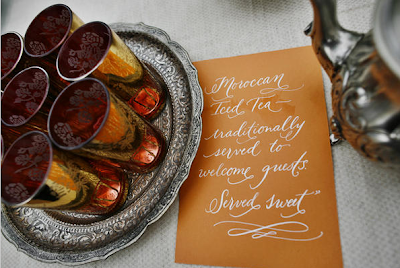 Moroccan
Iced Tea~
traditionally
served to
welcome guests.
Served sweet"